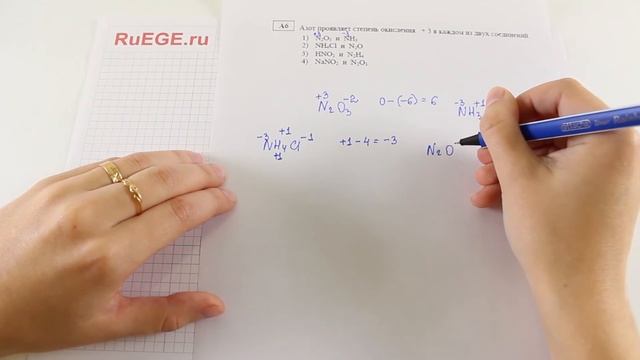 RuEGE.ru
А6 Азот проявляет степень окисления +3 в каждом из двух соединений:
+3 -3
1) N₂O₃ и NH₃
2) NH₄Cl и N₂O
3) HNO₂ и N₂H₄
4) NaNO₂ и N₂O₃
+3 -2
N₂O₃ 0-(-6)=6
-3 +1
NH₃
-3 +1 -1
NH₄Cl +1-4=-3
+1
N₂O